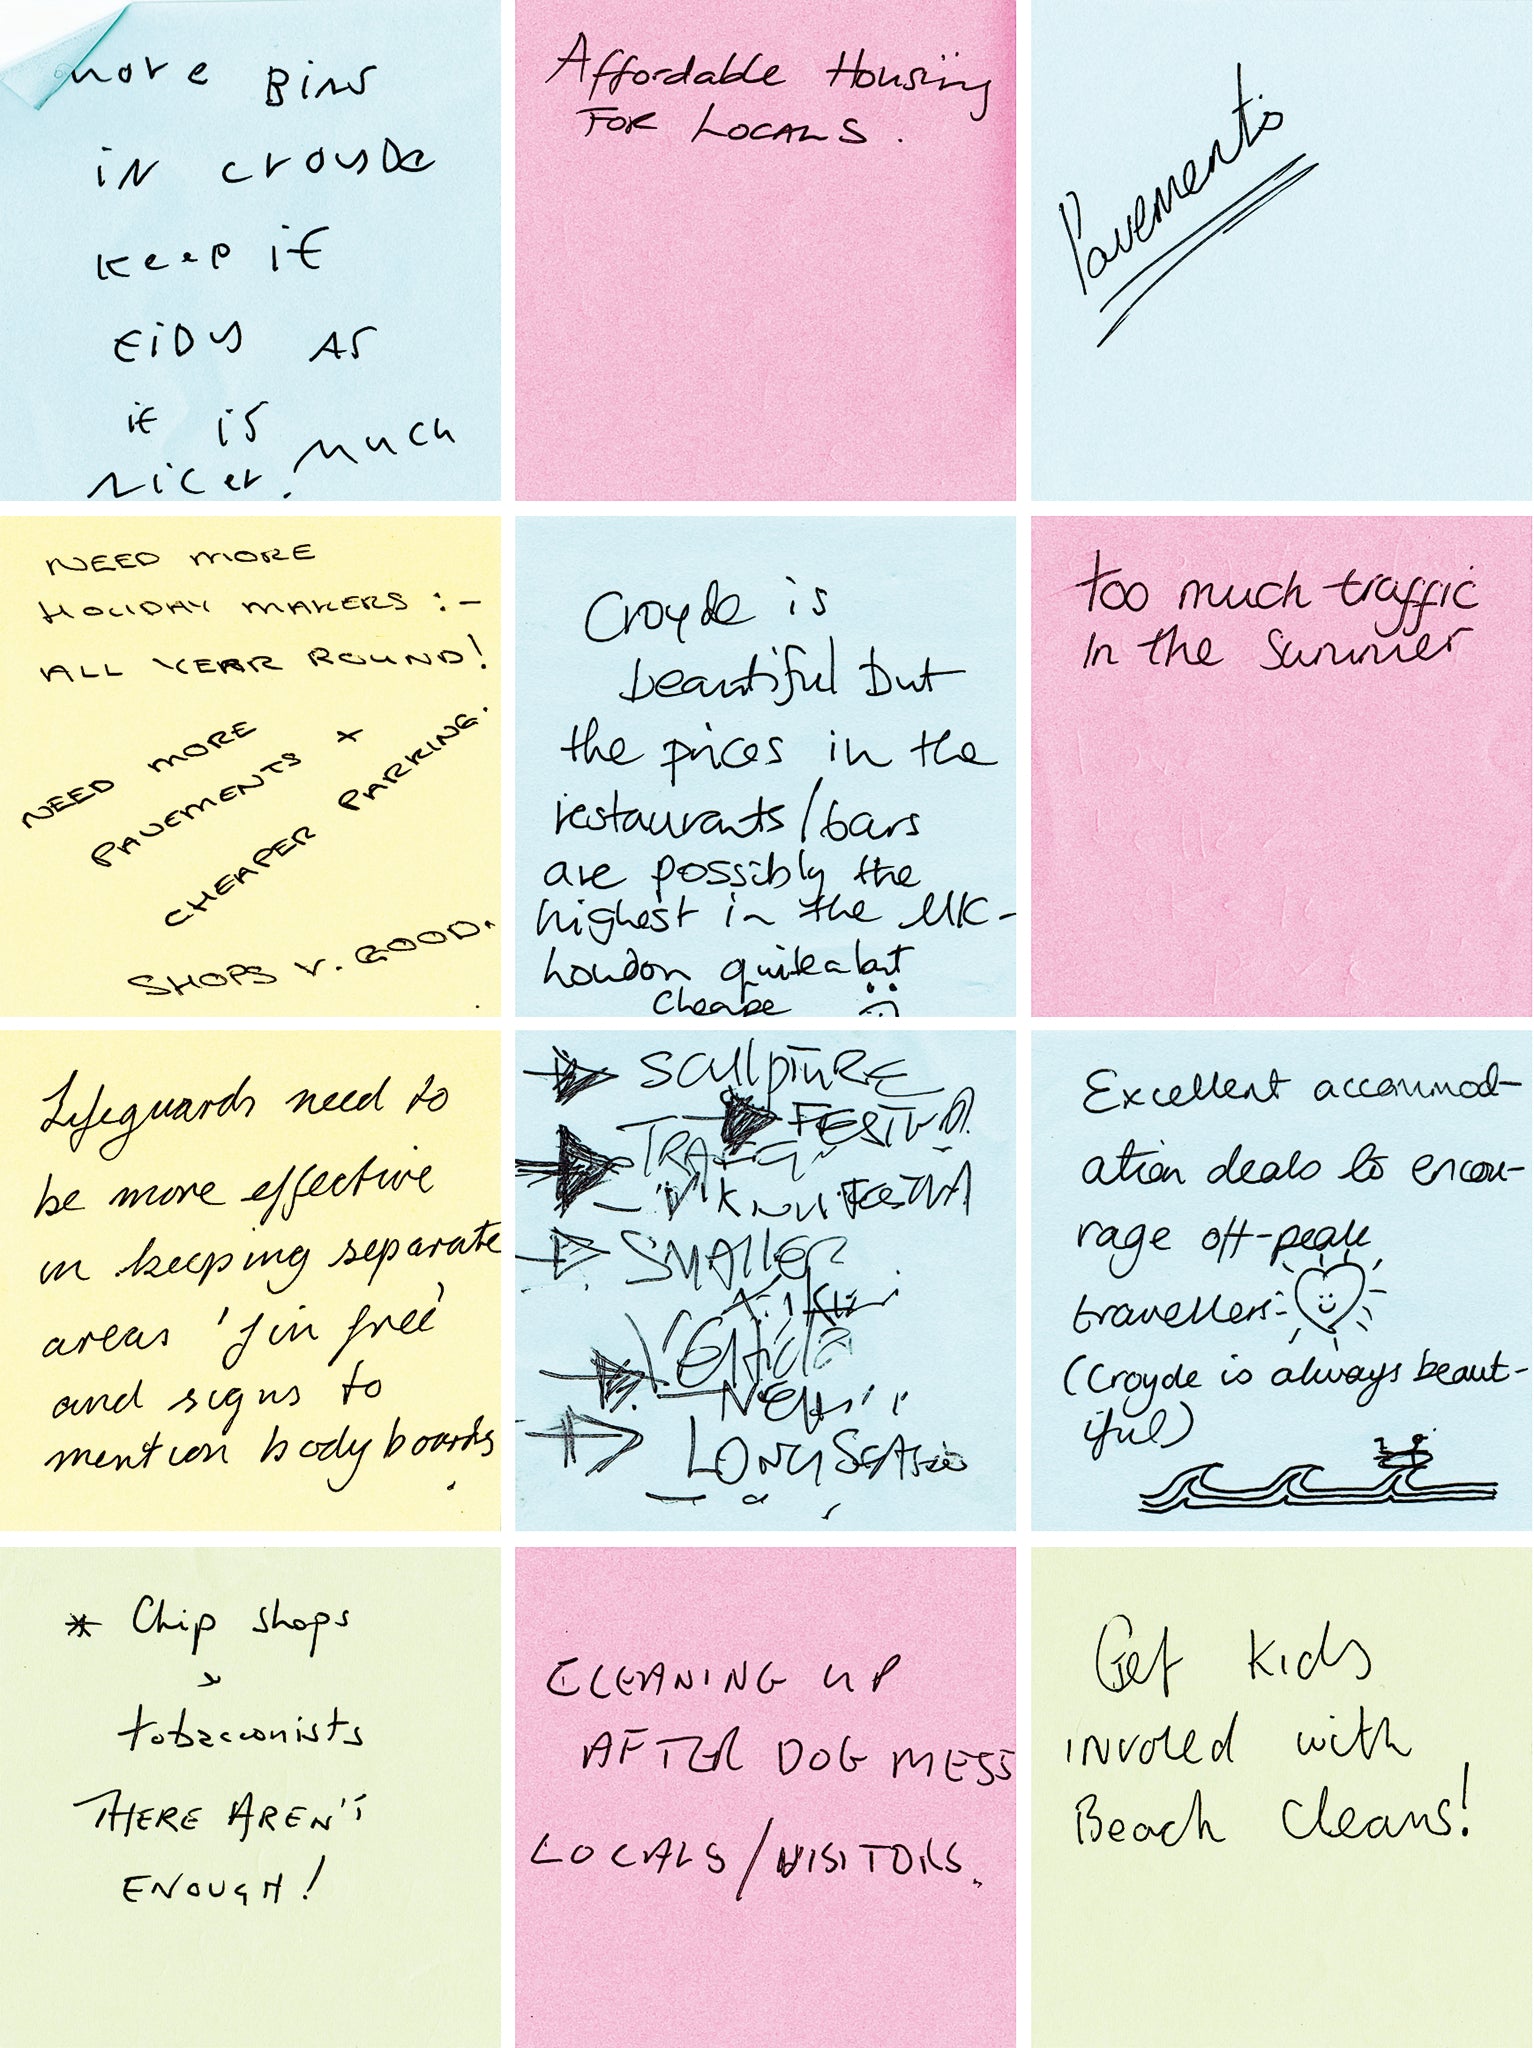 more Bins
in croyde
keep it
tidy as
it is much
nicer.
Affordable Housing
FOR LOCALS.
Pavements
NEED MORE
HOLIDAY MAKERS :-
ALL YEAR ROUND!
NEED MORE
PAVEMENTS +
CHEAPER PARKING.
SHOPS V. GOOD.
Croyde is
beautiful but
the prices in the
restaurants/bars
are possibly the
highest in the UK -
London quite a bit
Cheape
too much traffic
in the Summer
Lifeguards need to
be more effective
in keeping separate
areas 'fin free'
and signs to
mention body boards
.
SCULPTURE
FESTIVA
SMALLER
LONG SEASO
Excellent accommod-
ation deals to encou-
rage off-peak
travellers:
(Croyde is always beaut-
iful)
* Chip shops
tobacconists
THERE AREN'T
ENOUGH!
CLEANING UP
AFTER DOG MESS
LOCALS/VISITORS.
Get kids
involed with
Beach Cleans!